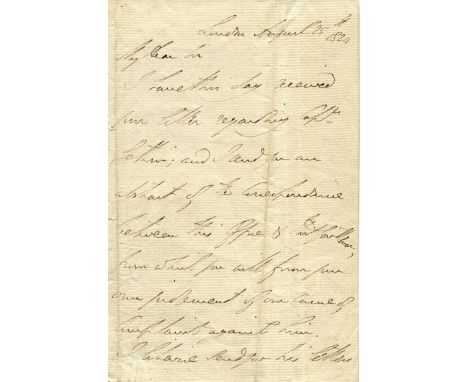 London August 25th
1824
My Dear Sir
I have this day received
your letter regarding Captn
and I send you an
abstract of the Correspondence
between this Office &
from which you will form your
own judgement of our cause of
Complaint against him.
I likewise send you his letters